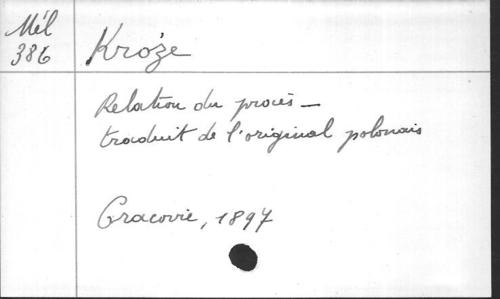 Mél
386
Krože
Relation du procès —
traduit de l'original polonais
Cracovie, 1897